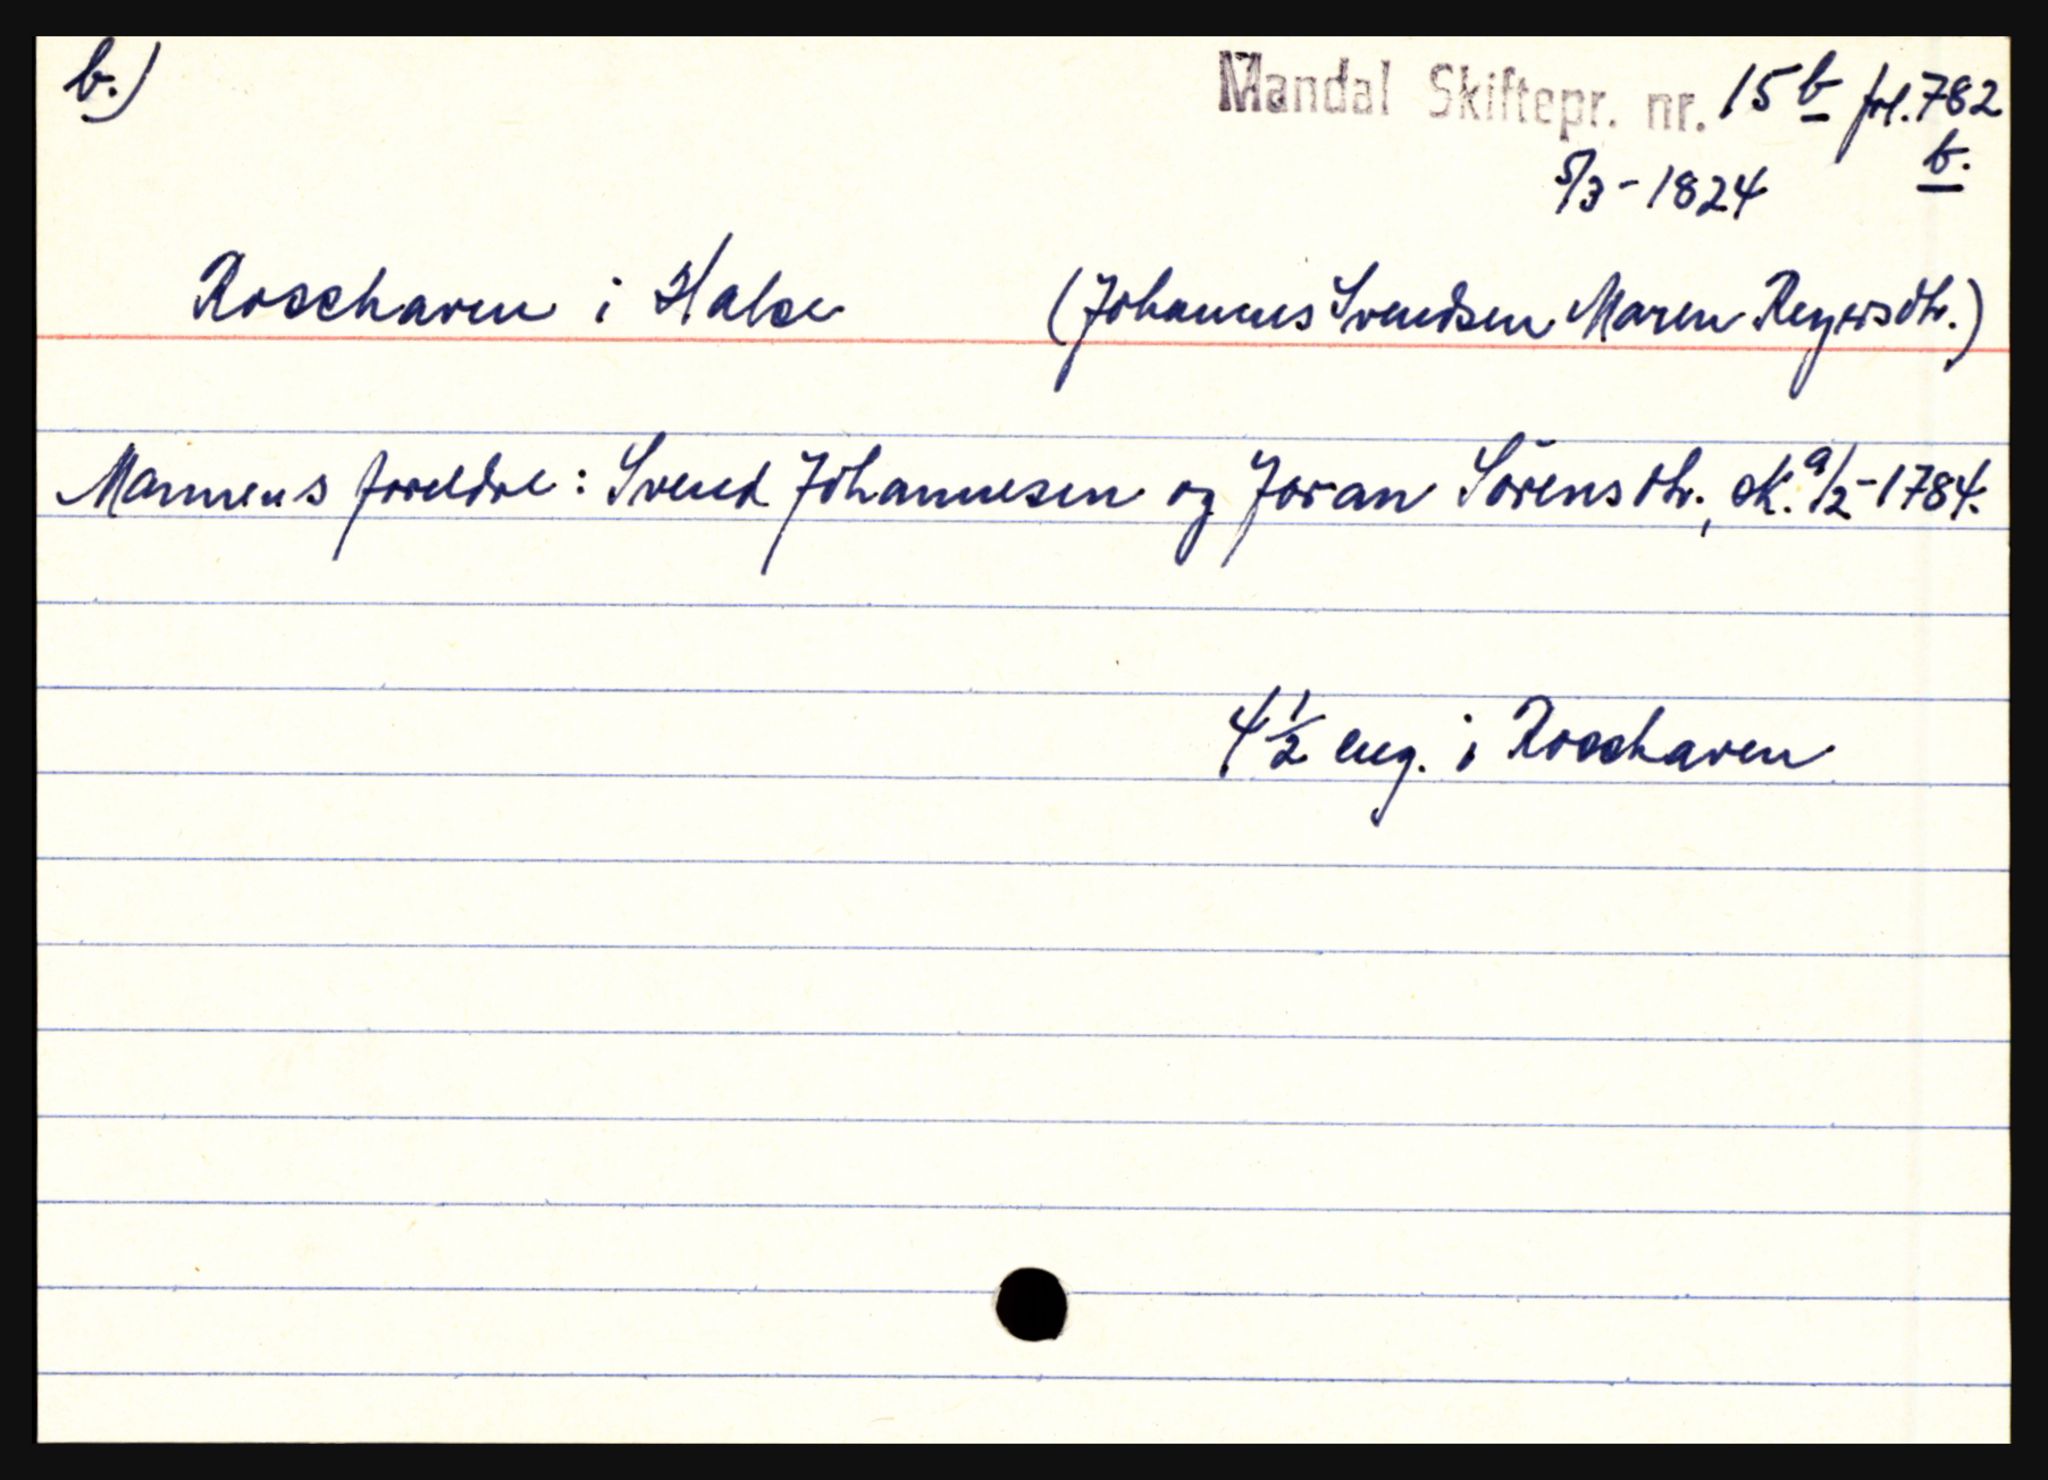 b.)
Mandal Skiftepr. nr. 15 b fol. 782
b.
5/3 - 1824
Roschaven i Halse (Johannes Svendsen Maren Reyersdtr.)
Mannens foreldre: Svend Johannesen og Joran Sörensdtr., sk. 9/2 - 1784.
4 1/2 eng. i Roschaven